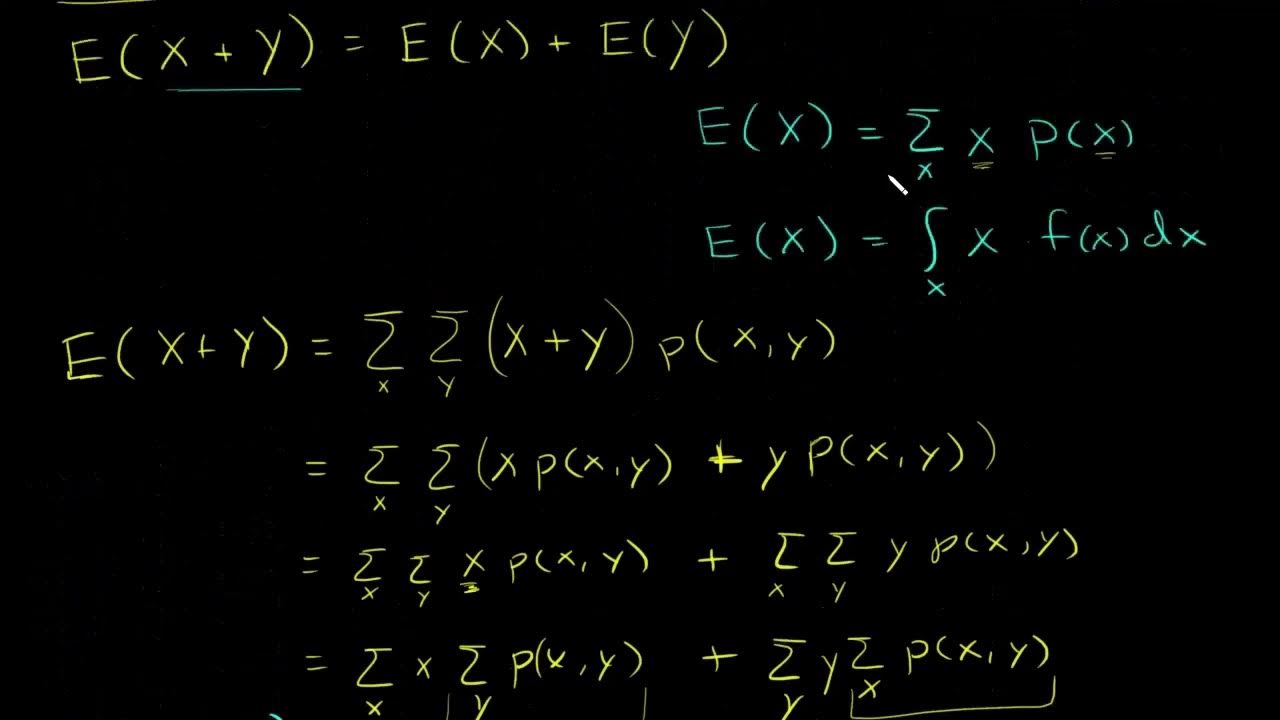 E(X + Y) = E(X) + E(Y)
E(X) = Σ_x x p(x)
E(X) = ∫_x x · f(x) dx
E(X+Y) = Σ_x Σ_y (x+y) p(x,y)
= Σ_x Σ_y (x p(x,y) + y p(x,y))
= Σ_x Σ_y x p(x,y) + Σ_x Σ_y y p(x,y)
= Σ_x x Σ_y p(x,y) + Σ_y y Σ_x p(x,y)